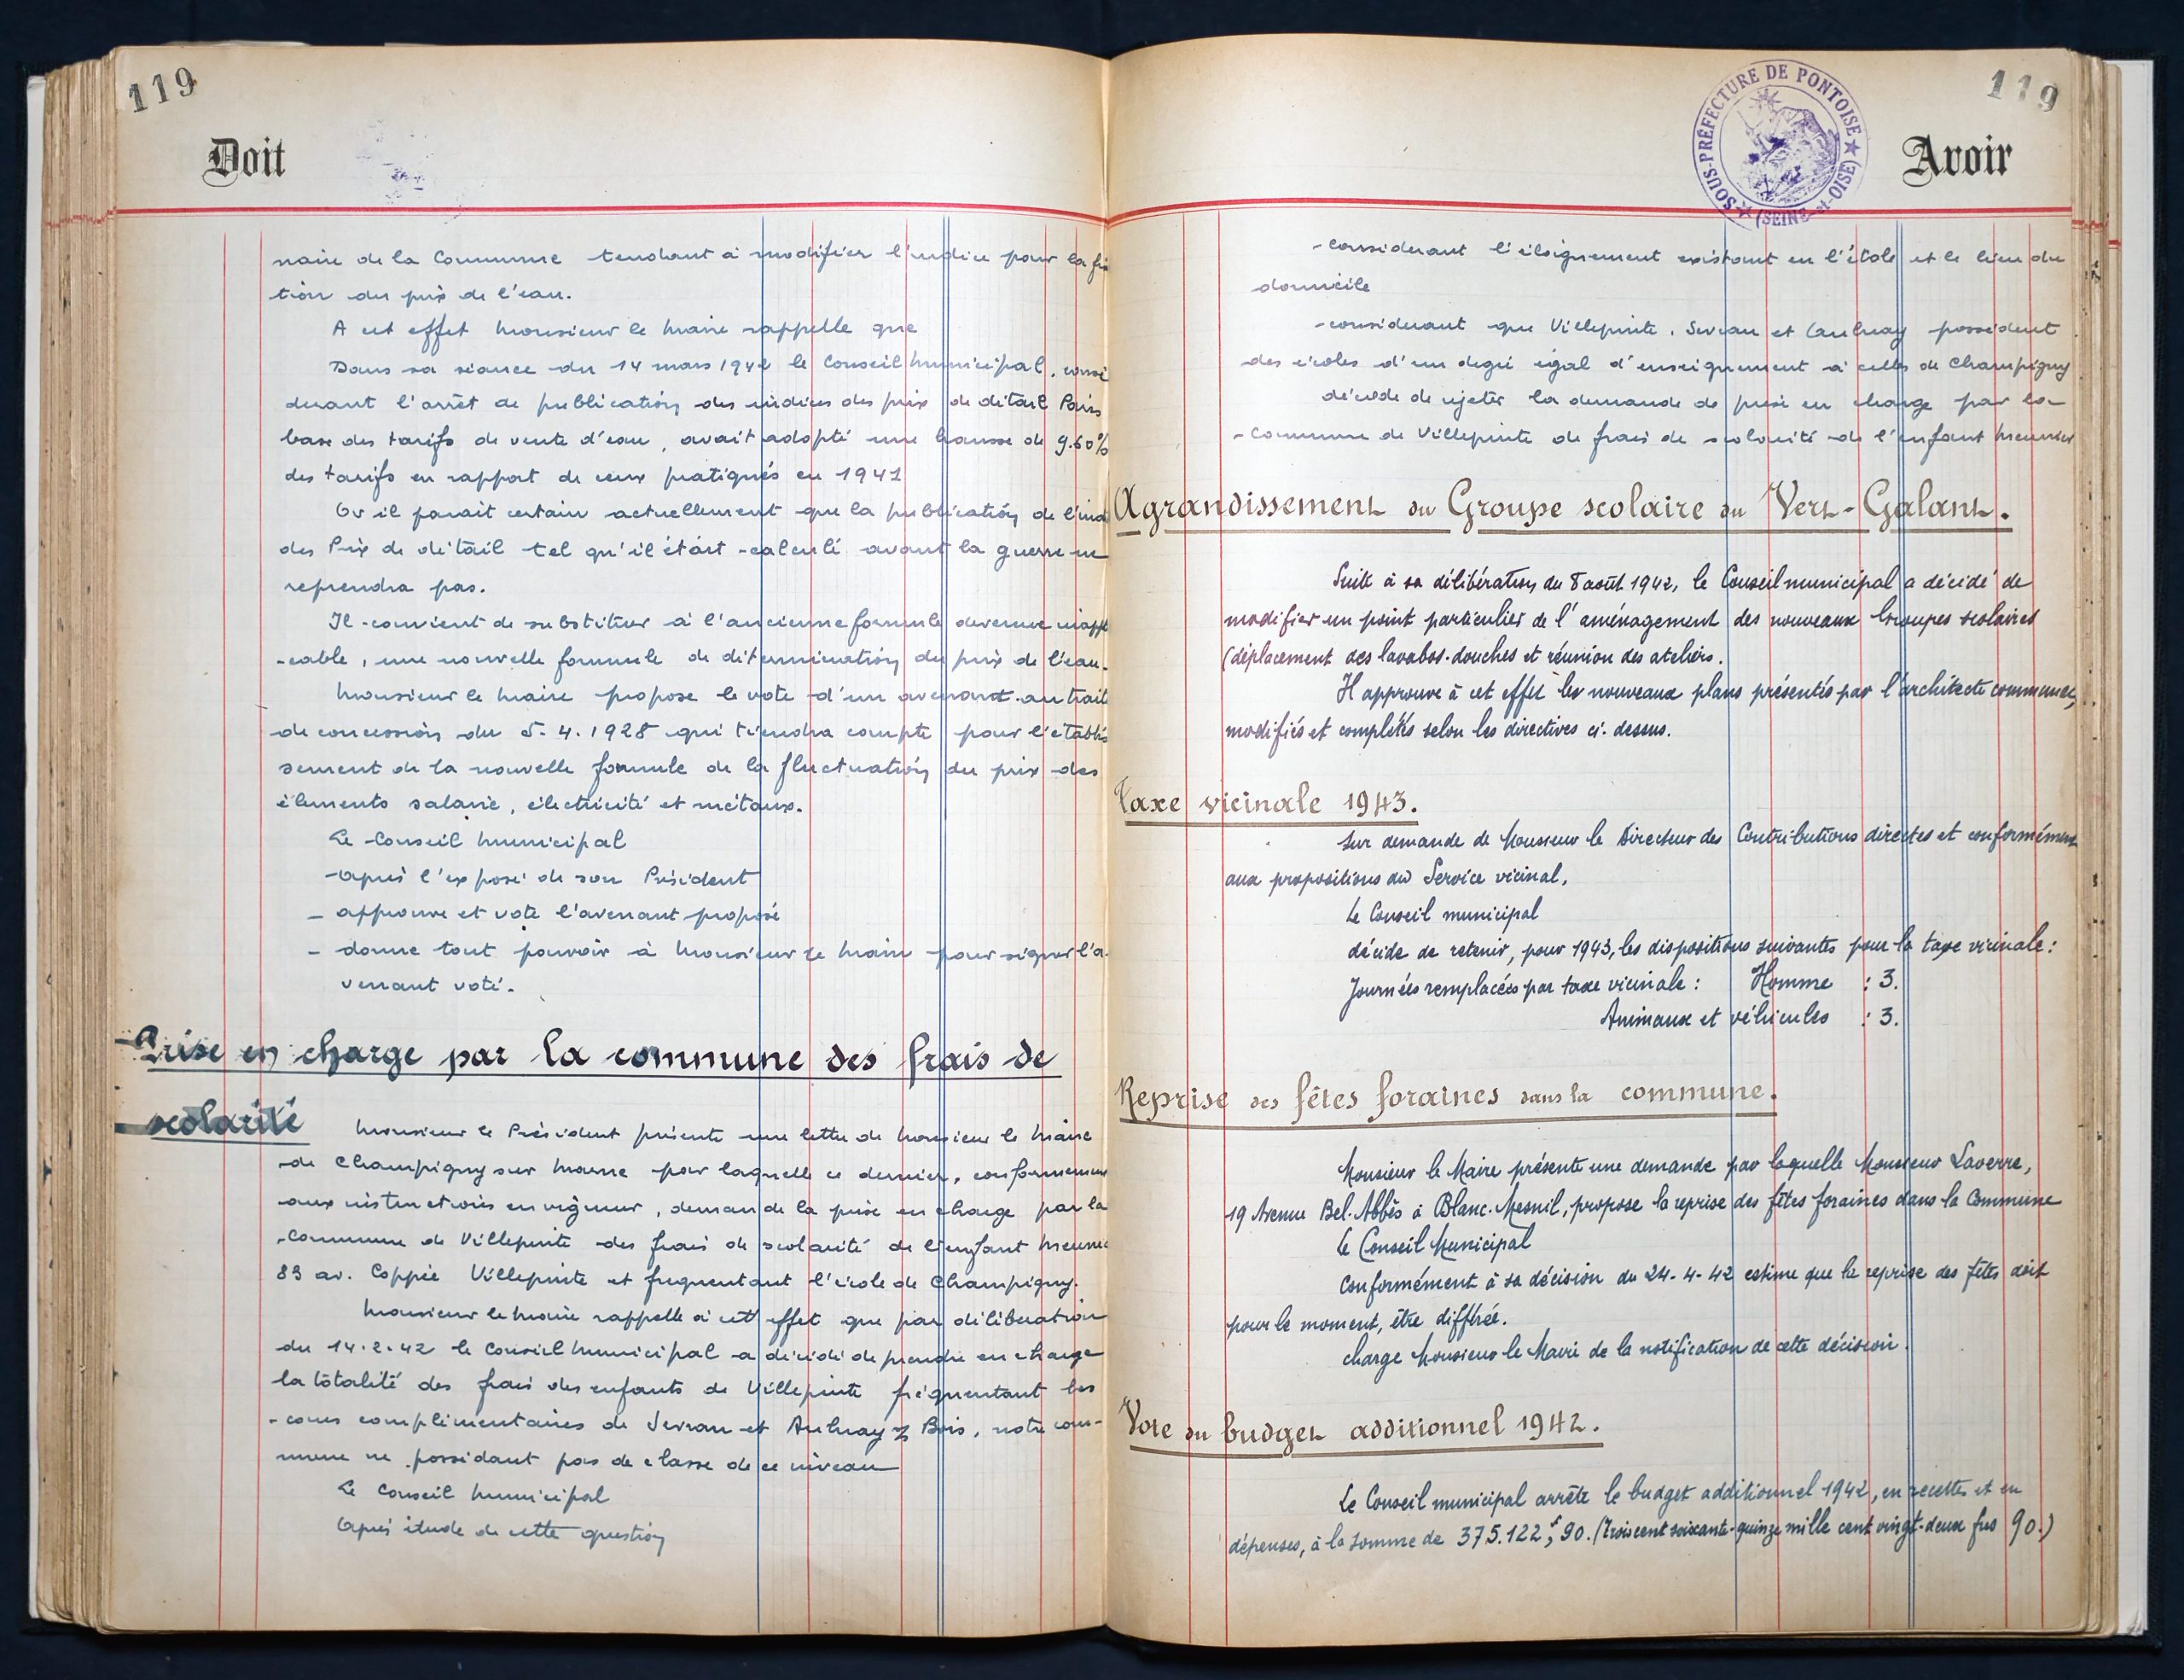 119
Doit
naire de la Commune tendant à modifier l'indice pour la fixa
tion du prix de l'eau.
A cet effet Monsieur le Maire rappelle que
Dans sa séance du 14 mars 1942 le Conseil Municipal, consi
dérant l'arrêt de publication des indices des prix de détail Paris
base des tarifs de vente d'eau, avait adopté une hausse de 9.60%
des tarifs en rapport de ceux pratiqués en 1941
Or il parait certain actuellement que la publication de l'ind
des Prix de détail tel qu'il était calculé avant la guerre ne
reprendra pas.
Il convient de substituer à l'ancienne formule devenue inappli
cable, une nouvelle formule de détermination du prix de l'eau.
Monsieur le Maire propose le vote d'un avenant au traité
de concession du 5.4.1928 qui tiendra compte pour l'établis
sement de la nouvelle formule de la fluctuation du prix des
éléments salaire, électricité et métaux.
Le Conseil Municipal
après l'exposé de son Président
- approuve et vote l'avenant proposé
- donne tout pouvoir à Monsieur le Maire pour signer l'a-
venant voté.
Prise en charge par la commune des frais de
scolarité
Monsieur le Président présente une lettre de Monsieur le Maire
de Champigny sur Marne par laquelle ce dernier, conformément
aux instructions en vigueur, demande la prise en charge par la
Commune de Villepinte des frais de scolarité de l'enfant Meunier
83 av. Coppée Villepinte et frequentant l'école de Champigny.
Monsieur le Maire rappelle à cet effet que par délibération
du 14.2.42 le Conseil Municipal a décidé de prendre en charge
la totalité des frais des enfants de Villepinte fréquentant les
cours complémentaires de Sevran et Aulnay s/ Bois, notre com-
mune ne possédant pas de classe de ce niveau
Le Conseil Municipal
Après étude de cette question
119
Avoir
SOUS-PRÉFECTURE DE PONTOISE
(SEINE-et-OISE)
- considerant l'éloignement existant en l'école et le lieu du
domicile
- considerant que Villepinte, Sevran et Aulnay possèdent
des écoles d'un degré égal d'enseignement à celles de Champigny
décide de rejeter la demande de prise en charge par la
Commune de Villepinte de frais de scolarité de l'enfant Meunier
Agrandissement du Groupe scolaire du Vert-Galant.
Suite à sa délibération du 8 août 1942, le Conseil municipal a décidé de
modifier un point particulier de l'aménagement des nouveaux Groupes scolaires
(déplacement des lavabos-douches et réunion des ateliers.
Il approuve à cet effet les nouveaux plans présentés par l'architecte communal,
modifiés et complétés selon les directives ci-dessus.
Taxe vicinale 1943.
Sur demande de Monsieur le Directeur des Contributions directes et conformément
aux propositions du Service vicinal,
Le Conseil municipal
décide de retenir, pour 1943, les dispositions suivantes pour la taxe vicinale :
Journées remplacées par taxe vicinale : Homme : 3.
Animaux et véhicules : 3.
Reprise des fêtes foraines dans la commune.
Monsieur le Maire présente une demande par laquelle Monsieur Laverre,
19 Avenue Bel-Abbès à Blanc-Mesnil, propose la reprise des fêtes foraines dans la Commune
Le Conseil Municipal
Conformément à sa décision du 24-4-42 estime que la reprise des fêtes doit
pour le moment, être différée.
charge Monsieur le Maire de la notification de cette décision.
Vote du budget additionnel 1942.
Le Conseil municipal arrête le budget additionnel 1942, en recettes et en
dépenses, à la somme de 375.122,f 90. (Trois cent soixante-quinze mille cent vingt-deux frs 90.)